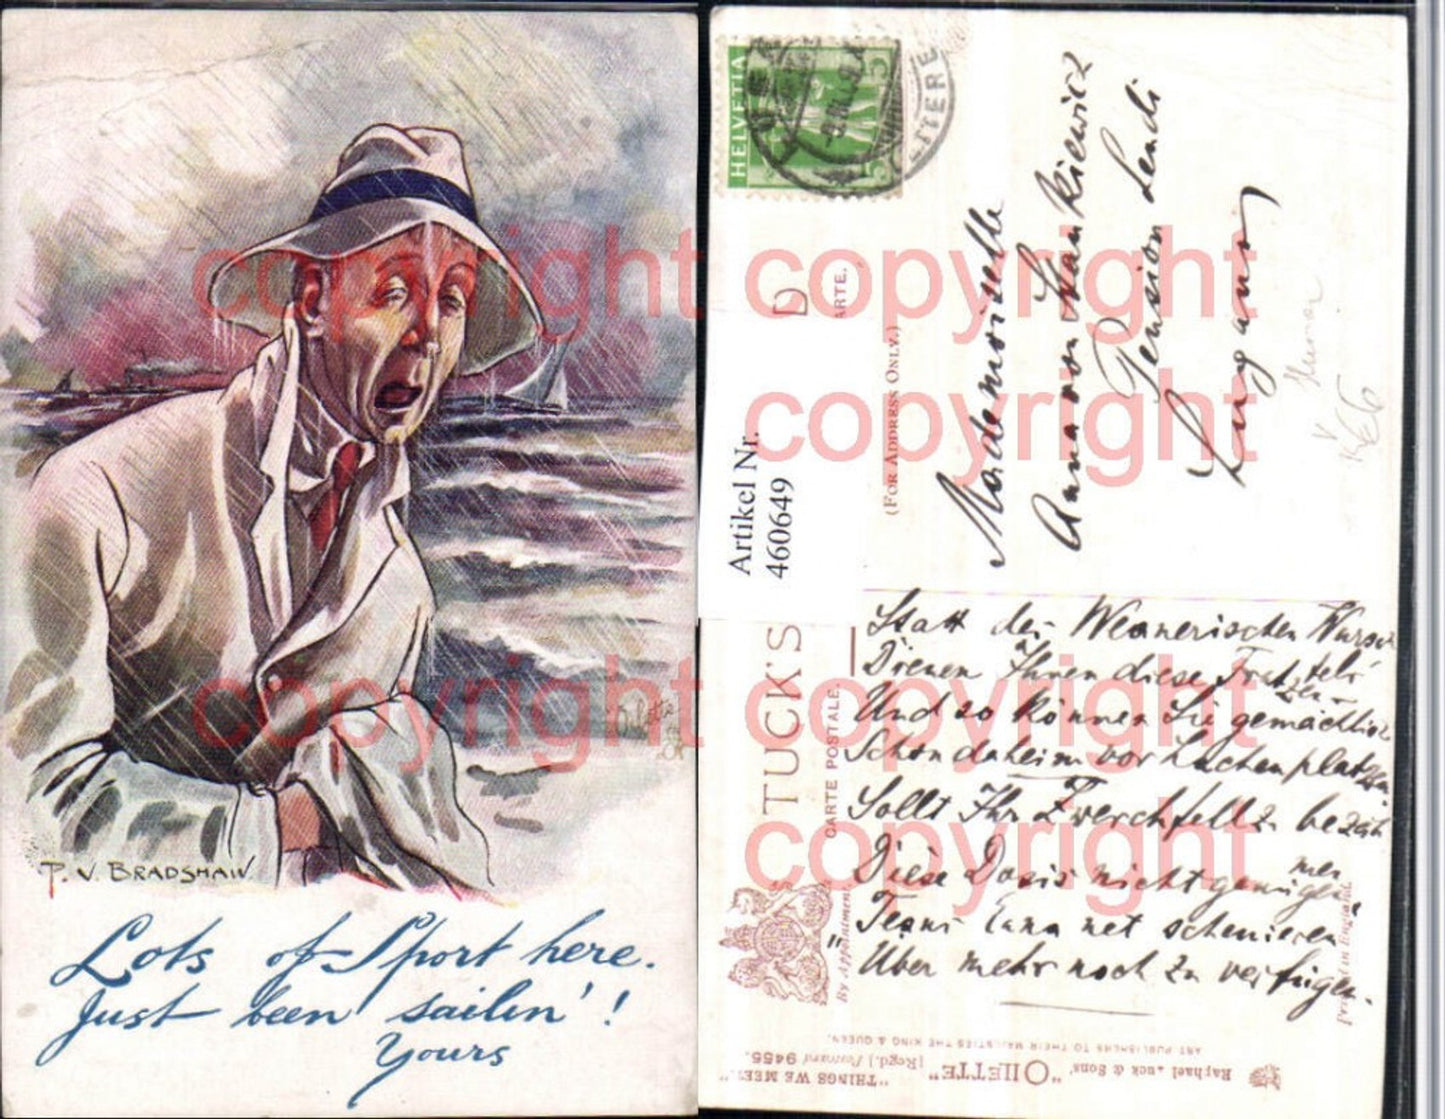 P. V. BRADSHAW.
Lots of Sport here.
Just been sailin'!
Yours
copyright
copyright
HELVETIA
5
copyright
copyright
copyright
copyright
Artikel Nr.
460649
D
ARTE.
(FOR ADDRESS ONLY.)
Mademoiselle
Anna von Stankiewicz
Pension Lendi
Lugano
TUCK'S
CARTE POSTALE.
By Appointment
Statt der
Dienen Ihnen diese
Und so können Sie gemächlich
Schon daheim vor Lachen platzen.
Sollt Ihr Zwerchfell
Diese Dosis nicht genügen
net schenieren
Über mehr noch zu verfügen.
ART PUBLISHERS TO THEIR MAJESTIES THE KING & QUEEN.
Raphael Tuck & Sons' "OILETTE" [Regd.] Postcard 9455.
"THINGS WE MEET."